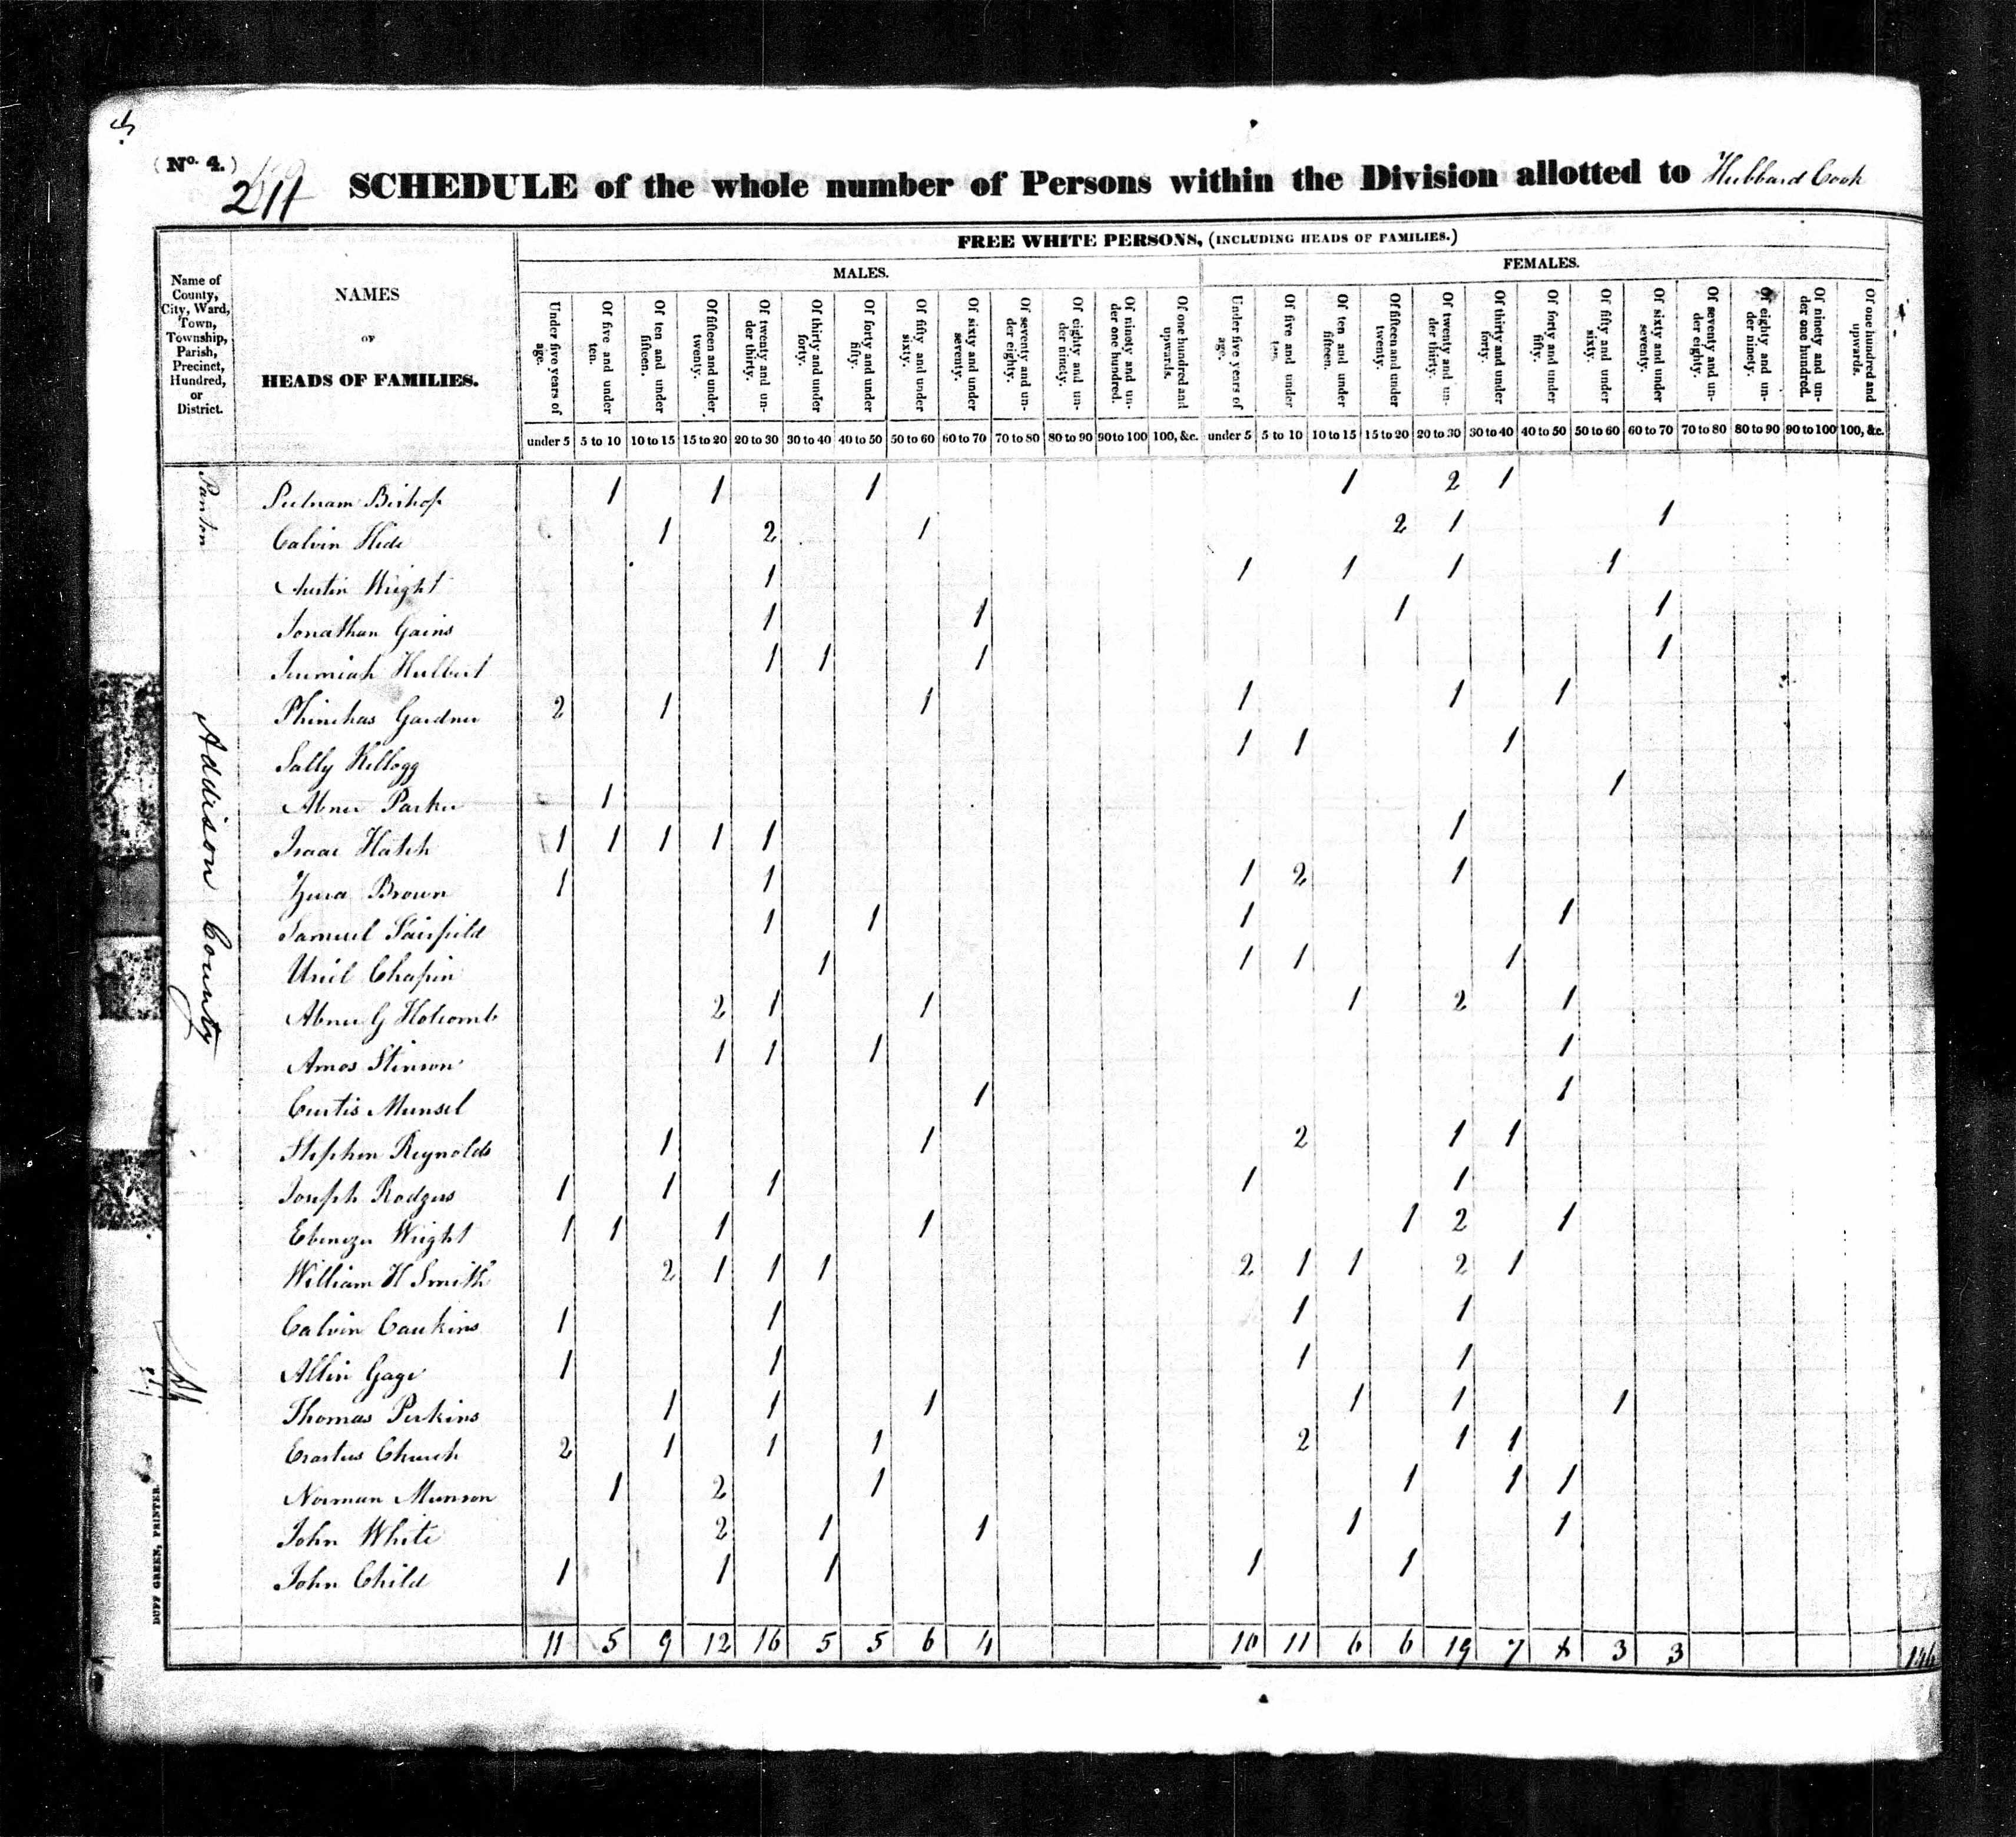 (No. 4.)
SCHEDULE of the whole number of Persons within the Division allotted to Hubbard Cook
FREE WHITE PERSONS, (INCLUDING HEADS OF FAMILIES.)
MALES. FEMALES.
Name of County, City, Ward, Town, Township, Parish, Precinct, Hundred, or District.
NAMES
OF
HEADS OF FAMILIES.
Under five years of age.
Of five and under ten.
Of ten and under fifteen.
Of fifteen and under twenty.
Of twenty and under thirty.
Of thirty and under forty.
Of forty and under fifty.
Of fifty and under sixty.
Of sixty and under seventy.
Of seventy and under eighty.
Of eighty and under ninety.
Of ninety and under one hundred.
Of one hundred and upwards.
Under five years of age.
Of five and under ten.
Of ten and under fifteen.
Of fifteen and under twenty.
Of twenty and under thirty.
Of thirty and under forty.
Of forty and under fifty.
Of fifty and under sixty.
Of sixty and under seventy.
Of seventy and under eighty.
Of eighty and under ninety.
Of ninety and under one hundred.
Of one hundred and upwards.
under 5 5 to 10 10 to 15 15 to 20 20 to 30 30 to 40 40 to 50 50 to 60 60 to 70 70 to 80 80 to 90 90 to 100 100, &c. under 5 5 to 10 10 to 15 15 to 20 20 to 30 30 to 40 40 to 50 50 to 60 60 to 70 70 to 80 80 to 90 90 to 100 100, &c.
Panton
Addison County
Putnam Bishop 1 1 1 1 2 1
Calvin Hide 1 2 1 2 1 1
Austin Wright 1 1 1 1 1
Jonathan Gains 1 1 1 1
Jeremiah Hulbert 1 1 1 1
Phinehas Gardner 2 1 1 1 1 1
Sally Kellogg 1 1 1
Abner Parker 1 1
Isaac Hatch 1 1 1 1 1 1
Brown 1 1 1 2 1
Samuel Fairfield 1 1 1 1
Uriel Chapin 1 1 1 1
Abner G Holcomb 2 1 1 1 2 1
Amos Stinson 1 1 1 1
Curtis Munsel 1 1
Stephen Reynolds 1 1 2 1 1
Joseph Rodgers 1 1 1 1 1
Ebenezer Wright 1 1 1 1 1 2 1
William H Smith 2 1 1 1 2 1 1 2 1
Calvin Caukins 1 1 1 1
Allin Gage 1 1 1 1
Thomas Perkins 1 1 1 1 1 1
Erastus Church 2 1 1 1 2 1 1
Norman Munson 1 2 1 1 1 1
John White 2 1 1 1 1
John Child 1 1 1 1 1
11 5 9 12 16 5 5 6 4 10 11 6 6 19 7 8 3 3 146
DUFF GREEN, PRINTER.